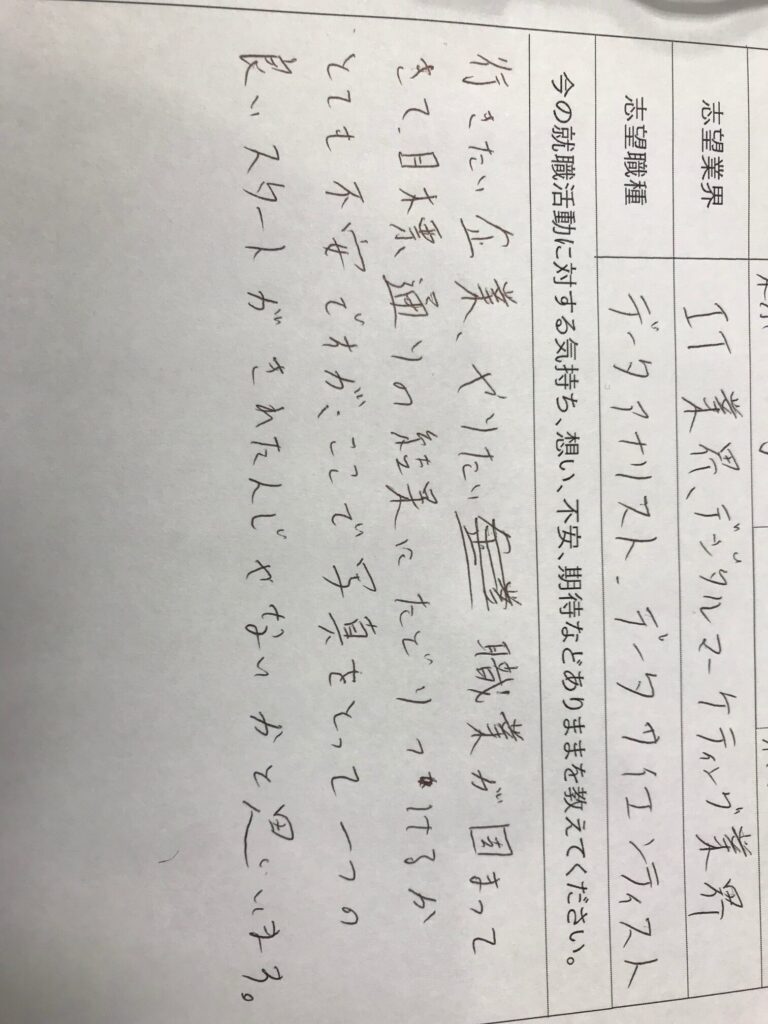 志望業界 IT業界、デジタルマーケティング業界
志望職種 データアナリスト、データサイエンティスト
今の就職活動に対する気持ち、想い、不安、期待などありままを教えてください。
行きたい企業、やりたい企業職業が固まって
きて、目標通りの結果にたどりつけるか
とても不安ですが、ここで写真をとって一つの
良いスタートがきれたんじゃないかと思います。